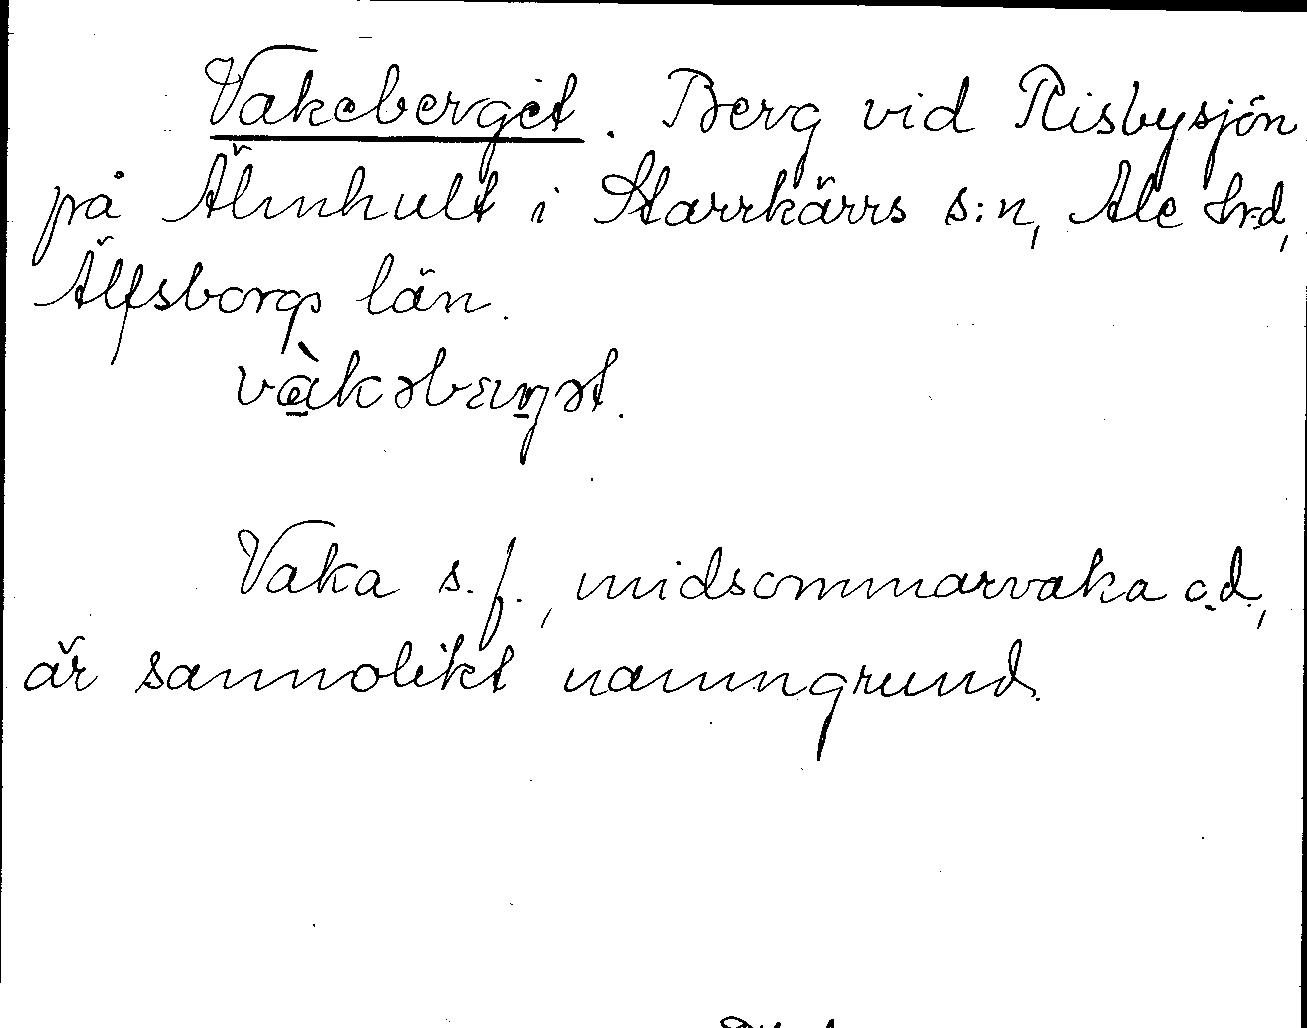 Vakeberget. Berg vid Risbysjön
på Älmhult i Starrkärrs s:n, Ale hrd,
Älfsborgs län.
vàkəbærjət.
Vaka s.f., midsommarvaka o.d.,
är sannolikt namngrund.